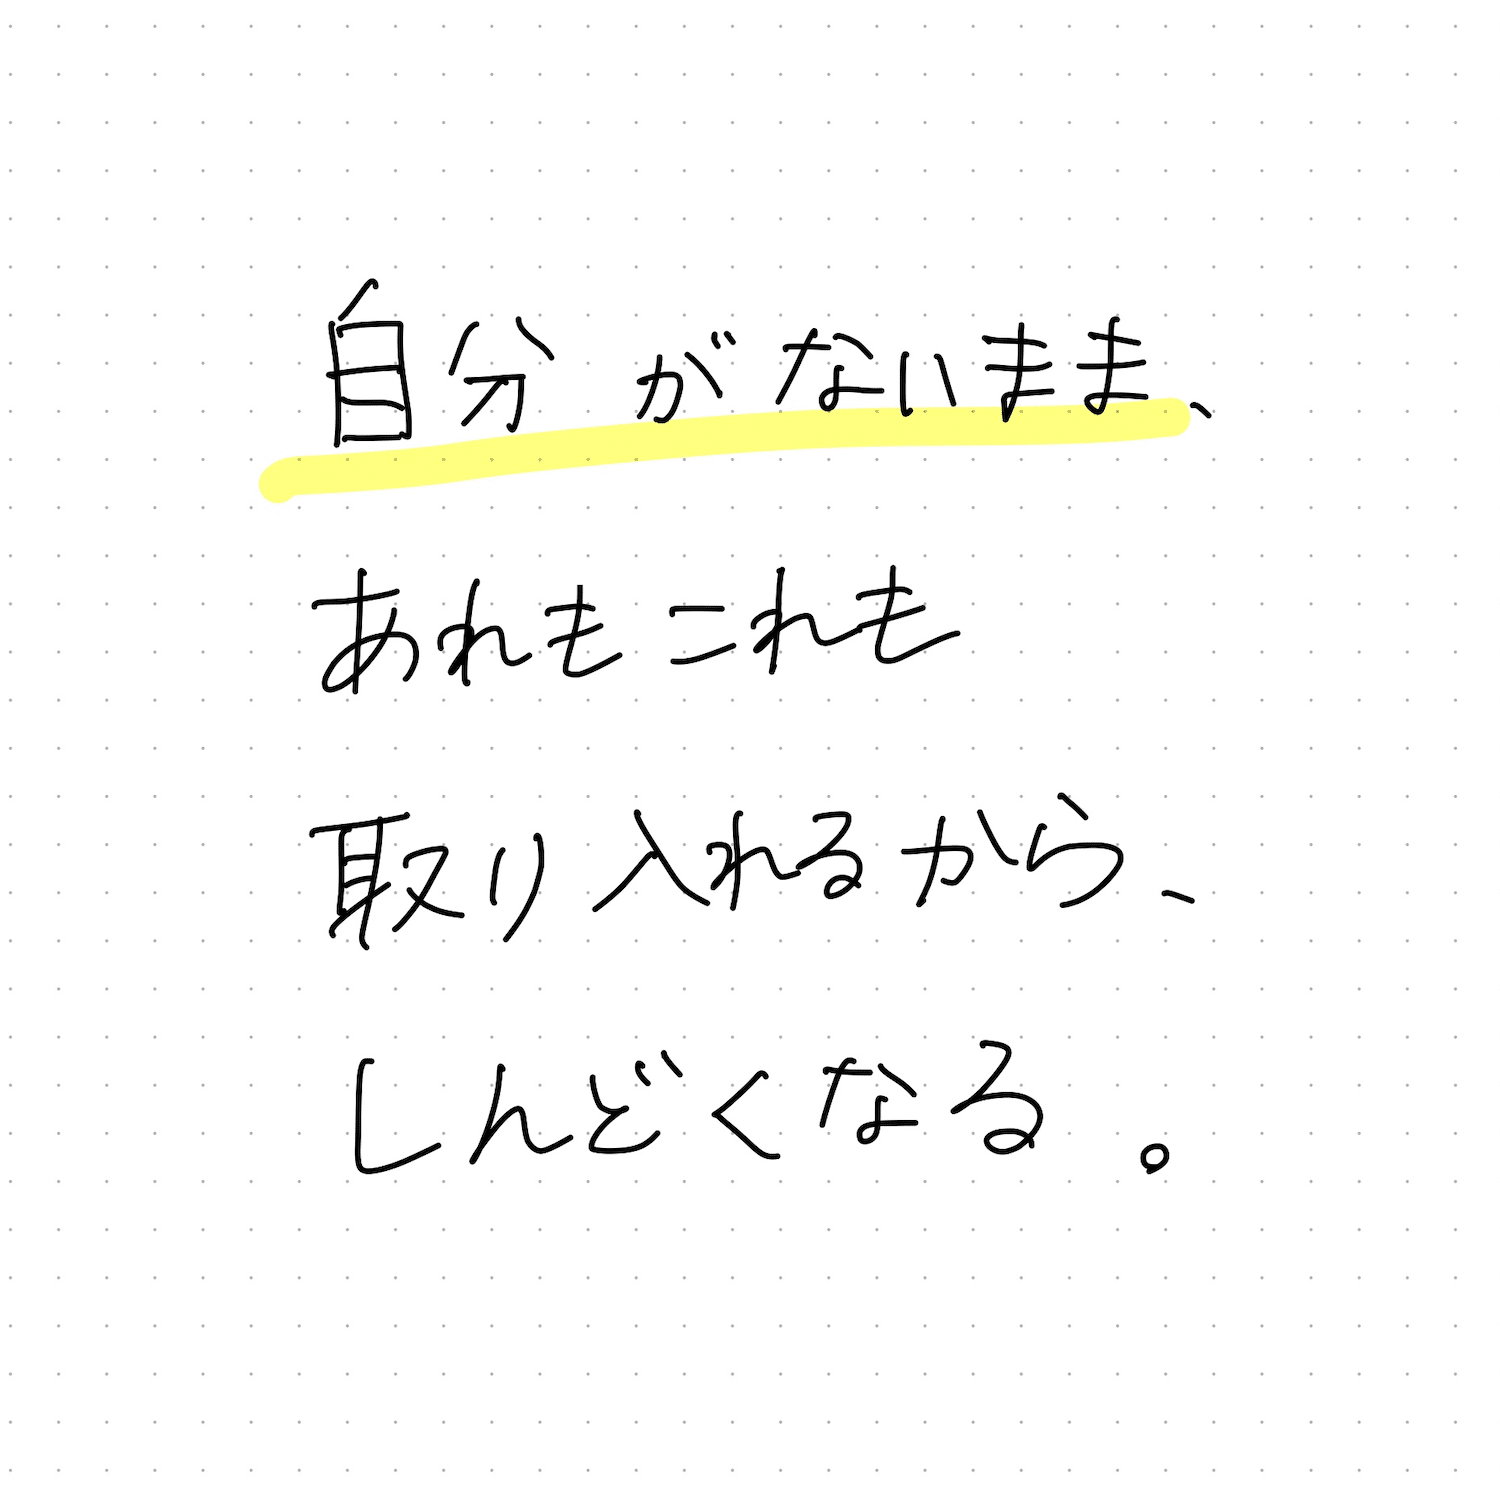 自分がないまま、
あれもこれも
取り入れるから、
しんどくなる。